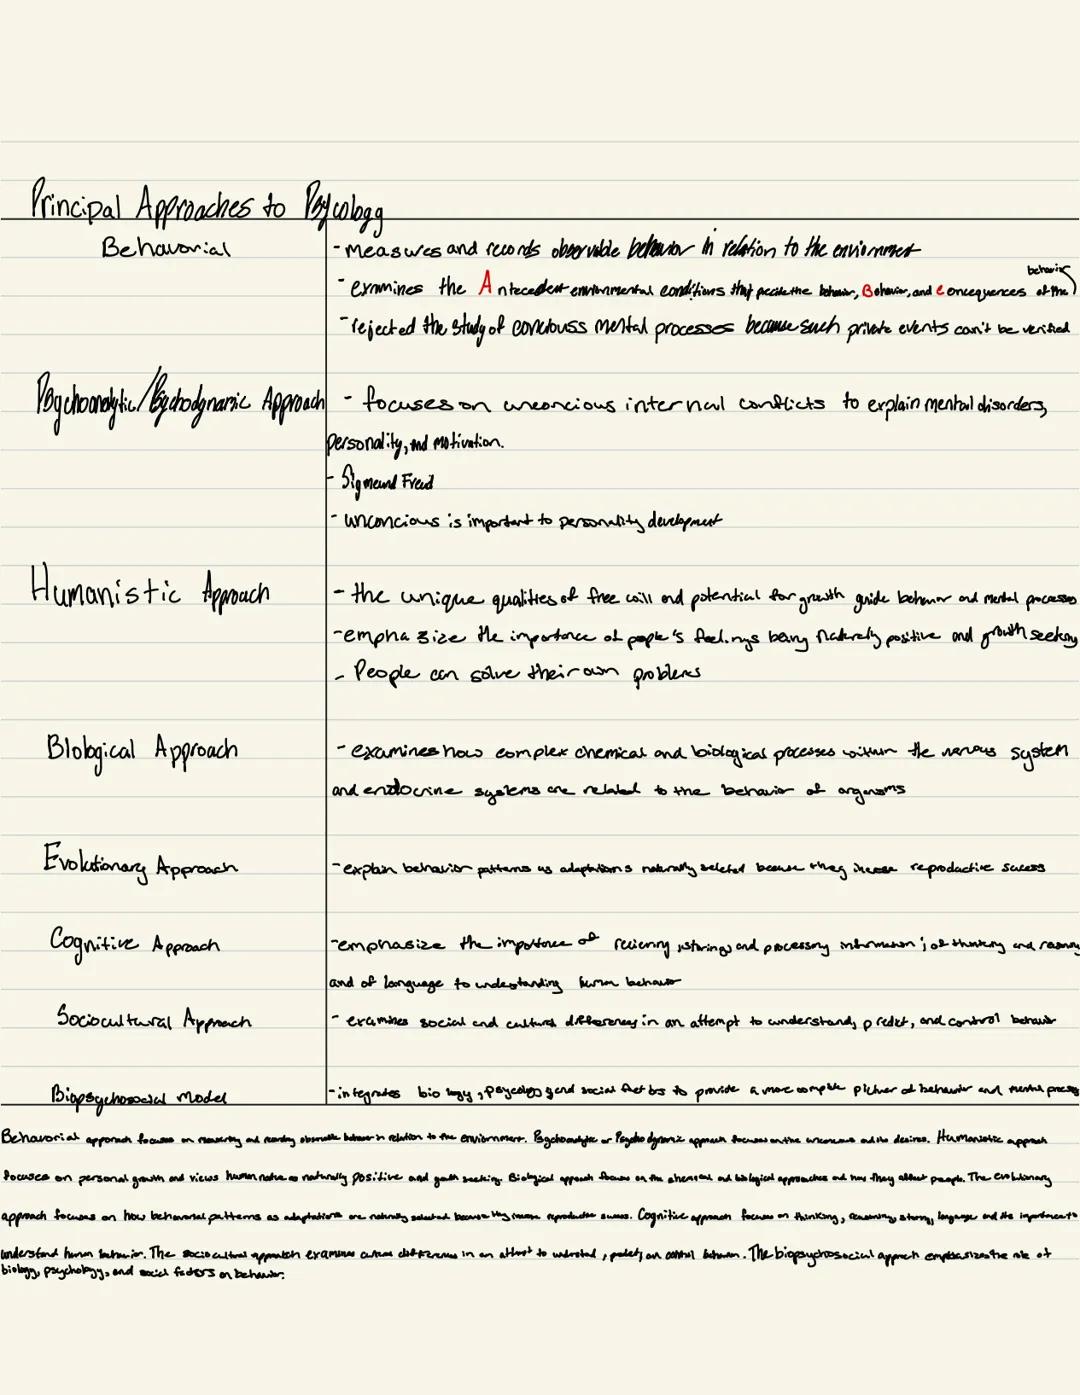 Principal Approaches to Psycology
Behavorial
- measures and records observable behavior in relation to the enviornment
behavior
- exmines the Antecedent environmental conditions that precede the behavior, Behavior, and Concequences of the
- rejected the study of conciouss mental processes because such private events can't be verified
Psychoanalytic/Psychodynamic Approach
- focuses on unconcious internal conflicts to explain mental disorders,
personality, and motivation.
- Sigmeund Freud
- unconcious is important to personality development
Humanistic Approach
- the unique qualities of free will and potential for growth guide behavior and mental processes
- emphasize the importance of people's feelings being naturely positive and growth seeking
- People can solve their own problems
Biological Approach
- examines how complex chemical and biological processes within the nervous system
and endocrine systems are related to the behavior of organisms
Evolutionary Approach
- explain behavior patterns as adaptations naturally selected because they increase reproductive sucess
Cognitive Approach
- emphasize the importance of recieving, storing, and processing information; of thinking and reasoning
and of language to understanding human behavior
Sociocultural Approach
- examines social and cultural differences in an attempt to understand, predict, and control behavior
Biopsychosocial Model
- integrates biology, psycology, and social factors to provide a more complete picture of behavior and mental process
Behavorial approach focuses on measuring and recording observable behavior in relation to the enviornment. Psychoanalytic or Psychodynamic approach focuses on the unconcious and its desires. Humanistic approach
focuses on personal growth and views human nature as naturally positive and growth seeking. Biological approach focuses on the chemical and biological approaches and how they affect people. The evolutionary
approach focuses on how behavioral patterns as adaptations are naturally selected because they increase reproductive sucess. Cognitive approach focuses on thinking, reasoning, storing, language and its importance to
understand human behavior. The sociocultural approach examines cultural differences in an attempt to understand, predict, and control behavior. The biopsychosocial approach emphasizes the role of
biology, psychology, and social factors on behavior.